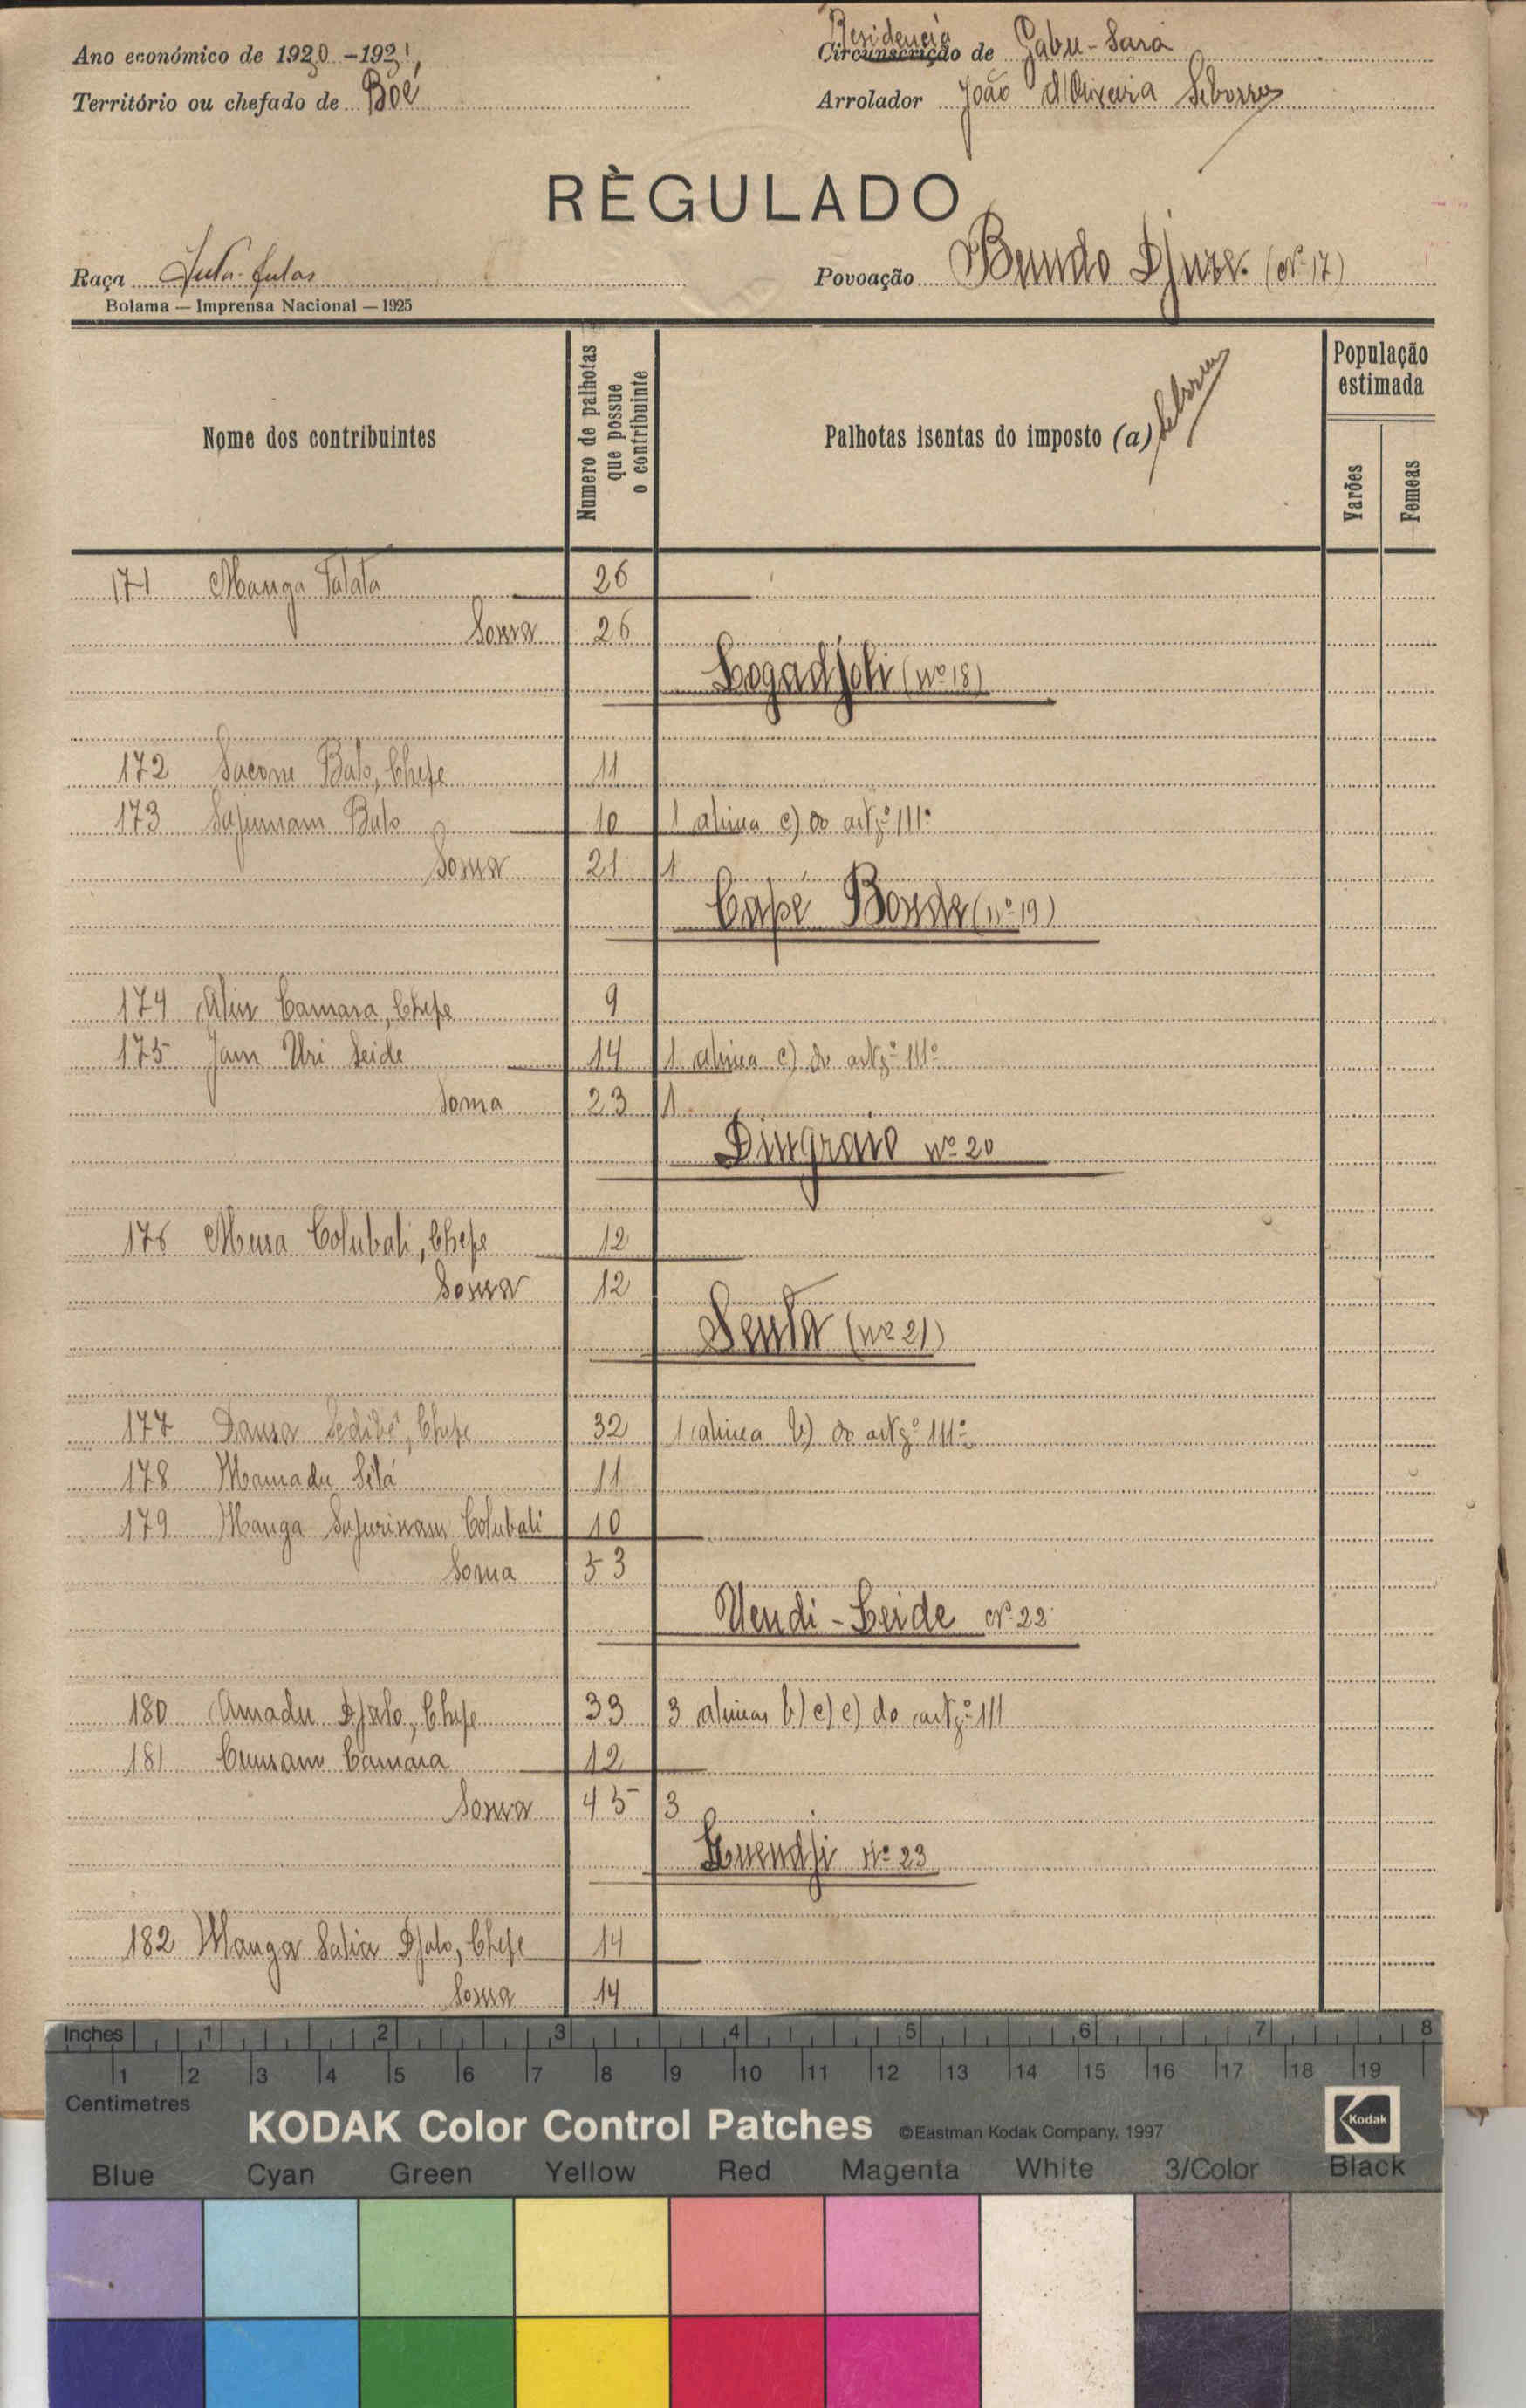 Ano económico de 1930-1931,
Residencia
Circunscrição de Gabu-Sara
Território ou chefado de Boé
Arrolador João d'Oliveira
RÈGULADO
Raça Futa-fulas
Povoação Bundo (Nº 17)
Bolama — Imprensa Nacional — 1925
Nome dos contribuintes
Numero de palhotas que possue o contribuinte
Palhotas isentas do imposto (a)
População estimada
Varões
Femeas
171 Manga Talata 26
Soma 26
Logadjoli (nº 18)
172 Sacone Balo, Chefe 11
173 Balo 10 1 alinea c) do artgº 111º
Soma 21 1
Capé Bonde (nº 19)
174 Aliu Camara, Chefe 9
175 Jam Uri Seide 14 1 alinea c) do artgº 111º
Soma 23 1
Dingraio nº 20
176 Musa Colubali, Chefe 12
Soma 12
Senta (nº 21)
177 Dansa Sedibé, Chefe 32 1 alinea b) do artgº 111º
178 Mamadu Silá 11
179 Manga Colubali 10
Soma 53
Uendi-Leide Nº 22
180 Amadu Djalo, Chefe 33 3 alineas b) c) e) do artgº 111
181 Camara 12
Soma 45 3
Nº 23
182 Manga Salia Djalo, Chefe 14
Soma 14
Inches 1 2 3 4 5 6 7 8
1 2 3 4 5 6 7 8 9 10 11 12 13 14 15 16 17 18 19
Centimetres
KODAK Color Control Patches ©Eastman Kodak Company, 1997
Kodak
Blue Cyan Green Yellow Red Magenta White 3/Color Black